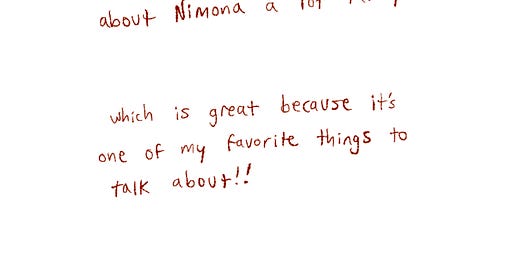 about Nimona a lot
which is great because it's
one of my favorite things to
talk about!!